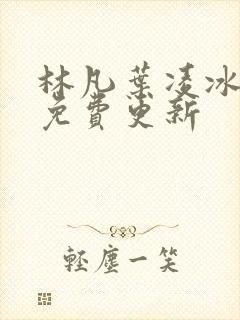 林凡葉凌冰
免費更新
輕塵一笑